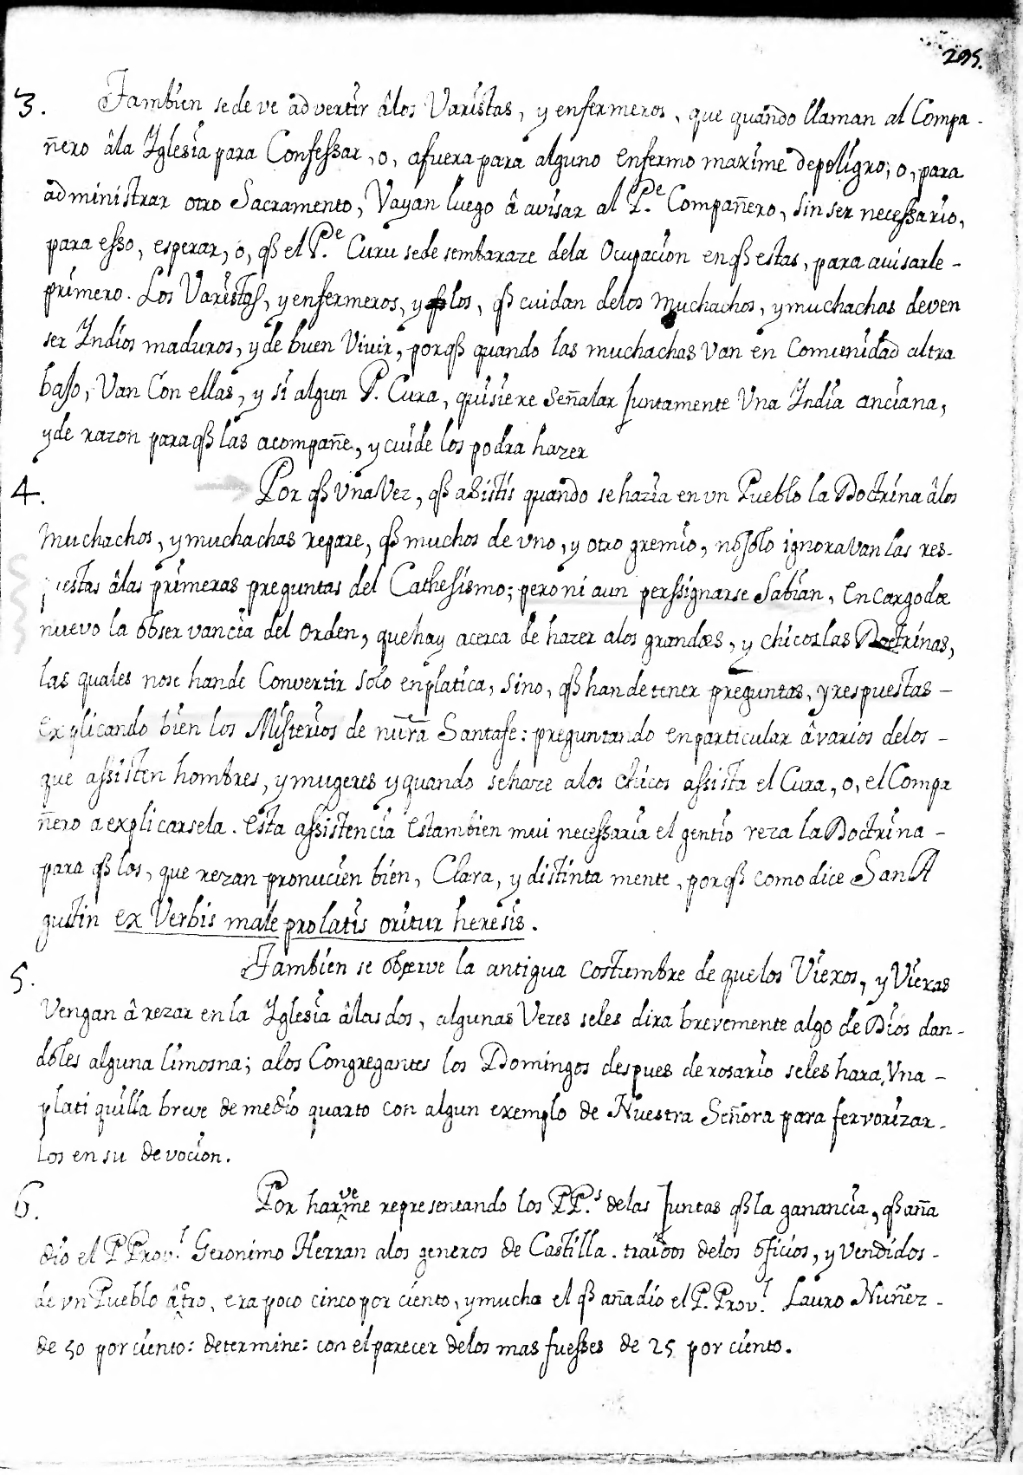 295.
3. Tambien sedeve advertir âlos Varistas, y enfermeros, que quando llaman al Compa-
ñero âla Yglesia para Confessar, o, afuera para alguno enfermo maxime depoligro; o, para
administrar otro Sacramento, Vayan luego â avisar al Pe. Compañero, sin ser necessario,
para esso, esperar, o, q̃ el Pe. Curu sede sembaraze dela Ocupacion enq̃ estas, para avisarle-
primero. Los Varistas, y enfermeros, y los, q̃ cuidan delos muchachos, y muchachas deven
ser Yndios maduros, y de buen Vivir, porq̃ quando las muchachas van en Comunidad altra
bajo, Van Con ellas, y si algun P. Cura, quisiere señalar Juntamente Una Yndia anciana,
y de razon paraq̃ las acompañe, y cuide los podra hazer
4. Por q̃ Una Vez, q̃ asistis quando se hazia en un Pueblo la Doctrina âlos
muchachos, y muchachas repare, q̃ muchos de uno, y otro gremio, nosolo ignoravan las res-
puestas âlas primeras preguntas del Cathesismo; pero ni aun perssignarse Sabian, Encargo de
nuevo la observancia del orden, que hay acerca de hazer alos grandes, y chicos las Doctrinas,
las quales nose hande Convertir solo enplatica, sino, q̃ han de tener preguntas, y respuestas-
Explicando bien los Misterios de nũra Santa fe: preguntando enparticular â varios delos-
que assisten hombres, y mugeres y quando se haze alos chicos assista el Cura, o, el Compa
ñero a explicarsela. Esta assistencia Es tambien mui necessaria el gentio reza la Doctrina-
para q̃ los, que rezan pronucien bien, Clara, y distinta mente, porq̃ como dice San A
gustin ex Verbis male prolatis oritur heresis.
5. Tambien se observe la antigua costumbre de que los Viexos, y Viexas
Vengan â rezar en la Yglesia âlas dos, algunas Vezes seles dira brevemente algo de Dios dan-
doles alguna limosna; alos Congregantes los Domingos despues de rosario seles hara Una-
plati quilla breve de medio quarto con algun exemplo de Nuestra Señora para fervorizar-
los en su devocion.
6. Por haverme representando los PP.s delas Juntas q̃ la ganancia, q̃ aña
dio el P Prov.l Geronimo Herran alos generos de Castilla. traidos delos oficios, y vendidos-
de un Pueblo âotro, era poco cinco por ciento, y mucha el q̃ añadio el P. Prov.l Lauro Nuñez-
de 50 por ciento: determine: con el parecer delos mas fuesses de 25 por ciento.